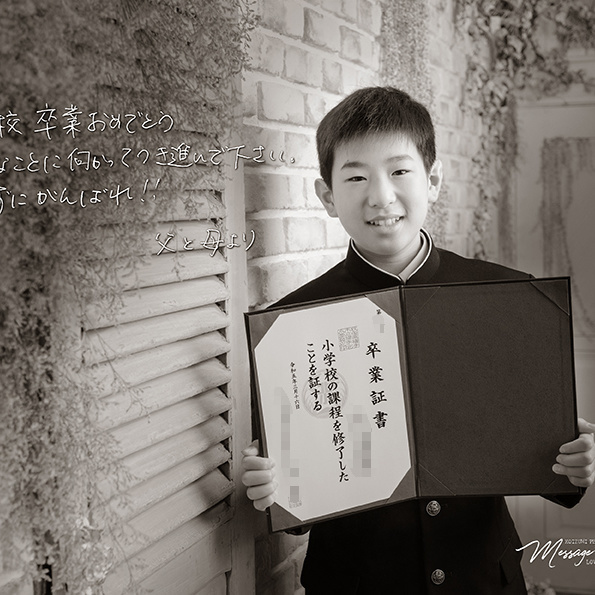 校 卒業おめでとう
なことに向かってつき進んで下さい。
にがんばれ!!
父と母より
卒業証書
第
小学校の課程を修了した
ことを証する
令和五年三月十六日
Message